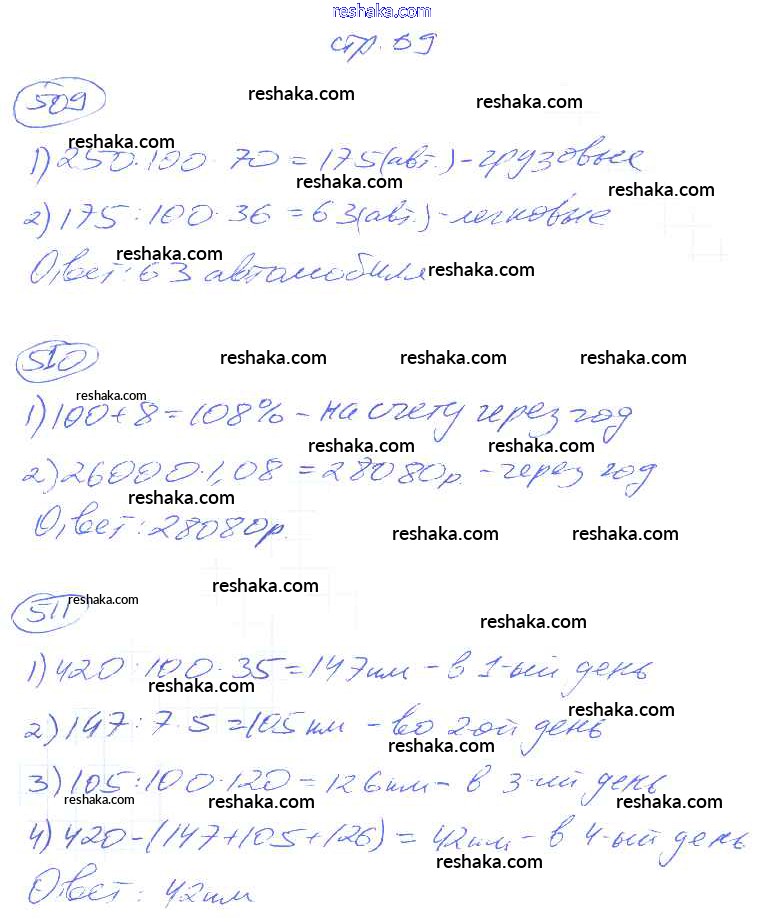 reshaka.com
стр. 89
509
reshaka.com reshaka.com
reshaka.com
1) 250:100·70=175(авт.)-грузовые
reshaka.com reshaka.com
2) 175:100·36=63(авт.)-легковые
reshaka.com reshaka.com
Ответ: 63 автомобиля
510
reshaka.com reshaka.com reshaka.com
reshaka.com
1) 100+8=108%-на счету через год
reshaka.com reshaka.com
2) 26000·1,08=28080р.-через год
reshaka.com
Ответ: 28080р.
reshaka.com reshaka.com
reshaka.com
511
reshaka.com
reshaka.com
1) 420:100·35=147км-в 1-ый день
reshaka.com
reshaka.com
2) 147:7·5=105км-во 2-ой день
reshaka.com
3) 105:100·120=126км-в 3-ий день
reshaka.com reshaka.com reshaka.com reshaka.com
4) 420-(147+105+126)=42км-в 4-ый день
reshaka.com
Ответ: 42км